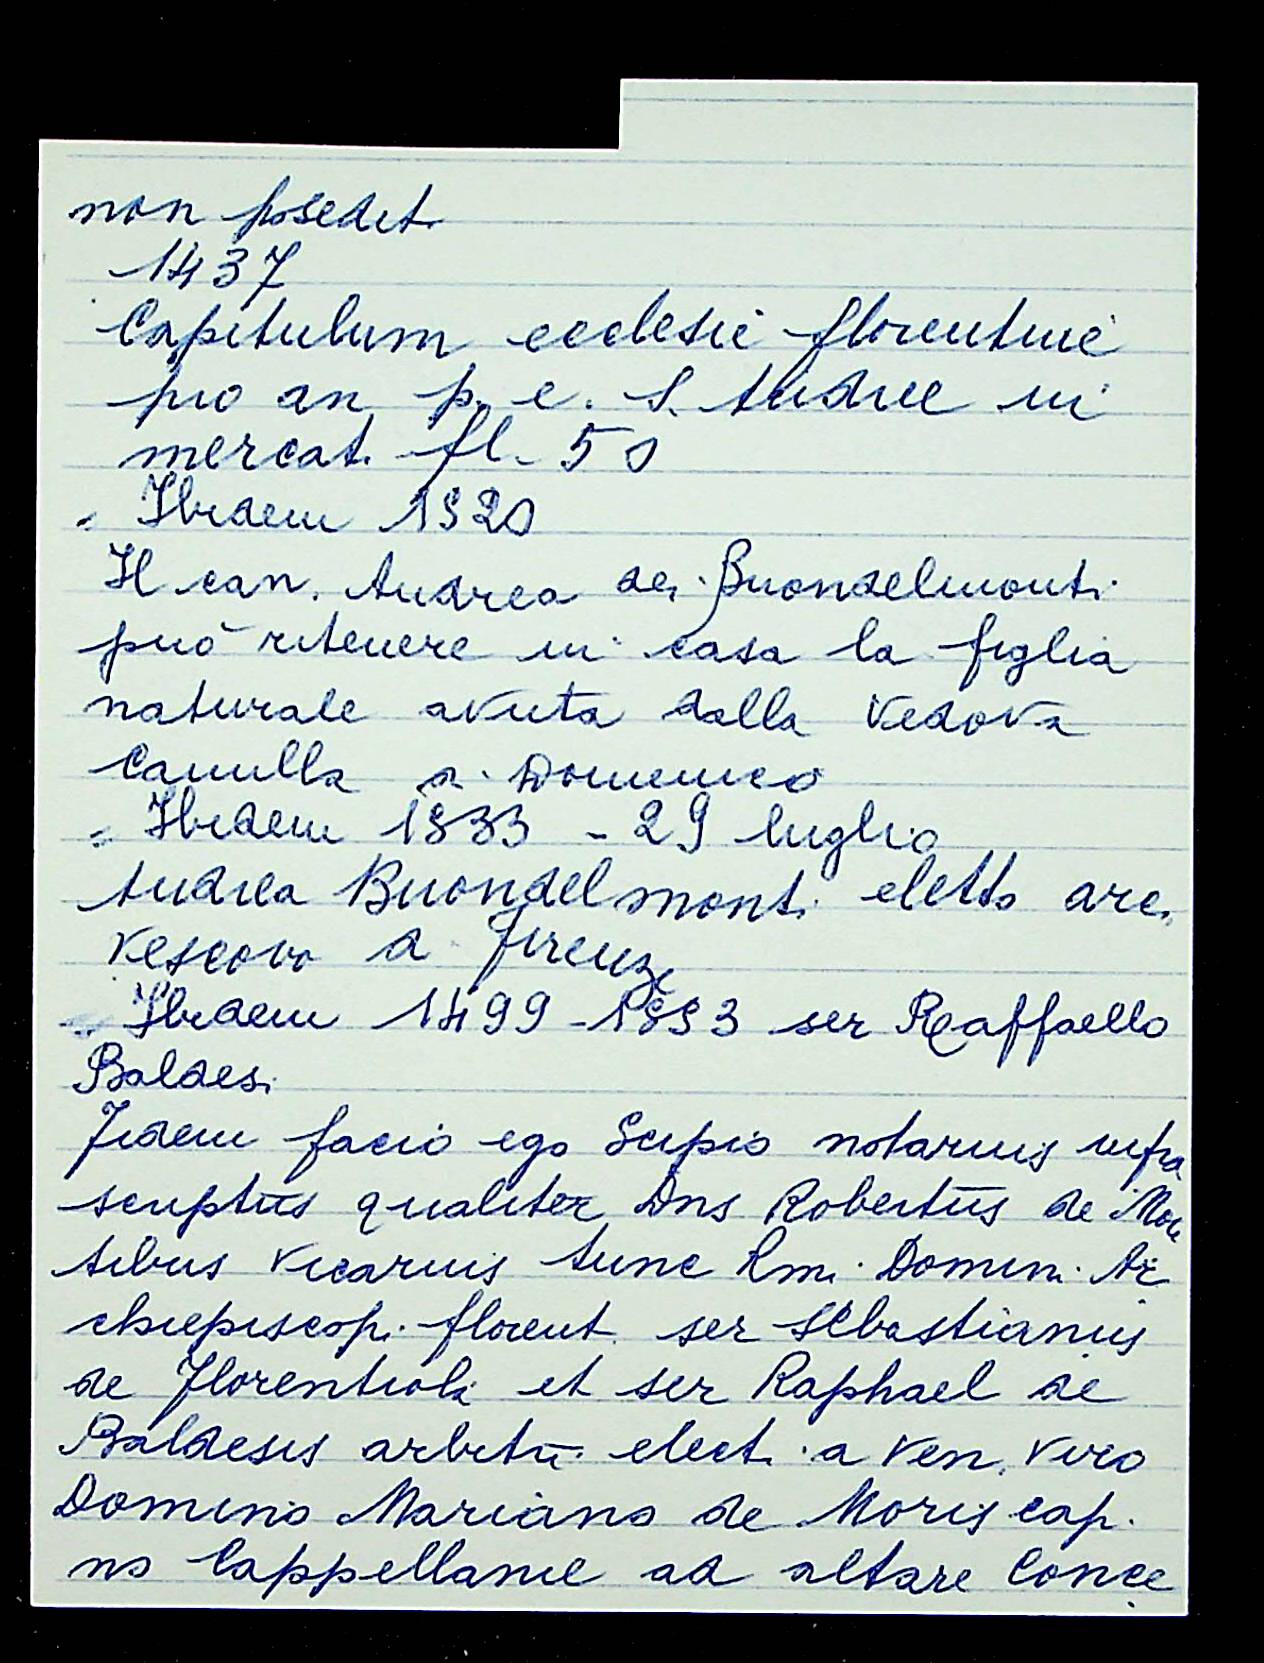 non posedit
1437
Capitulum ecclesie florentine
pro an p. e. S. Andree in
mercat. fl. 50
" Ibidem 1520
Il can. Andrea dei Buondelmonti
può ritenere in casa la figlia
naturale avuta dalla vedova
Camilla di Domenico
" Ibidem 1533 - 29 luglio
Andrea Buondelmonti eletto arci
vescovo di Firenze
" Ibidem 1499-1553 ser Raffaello
Baldesi
Fidem facio ego Scipio notarius infra
scriptus qualiter Dns Robertus de Mon
tibus vicarius tunc Rmi. Domini Ar
chiepiscopi florent. ser Sebastianus
de Florentiola et ser Raphael de
Baldesis arbitri electi a ven. viro
Domino Mariano de Moris cap.
no Cappellanie ad altare Conce